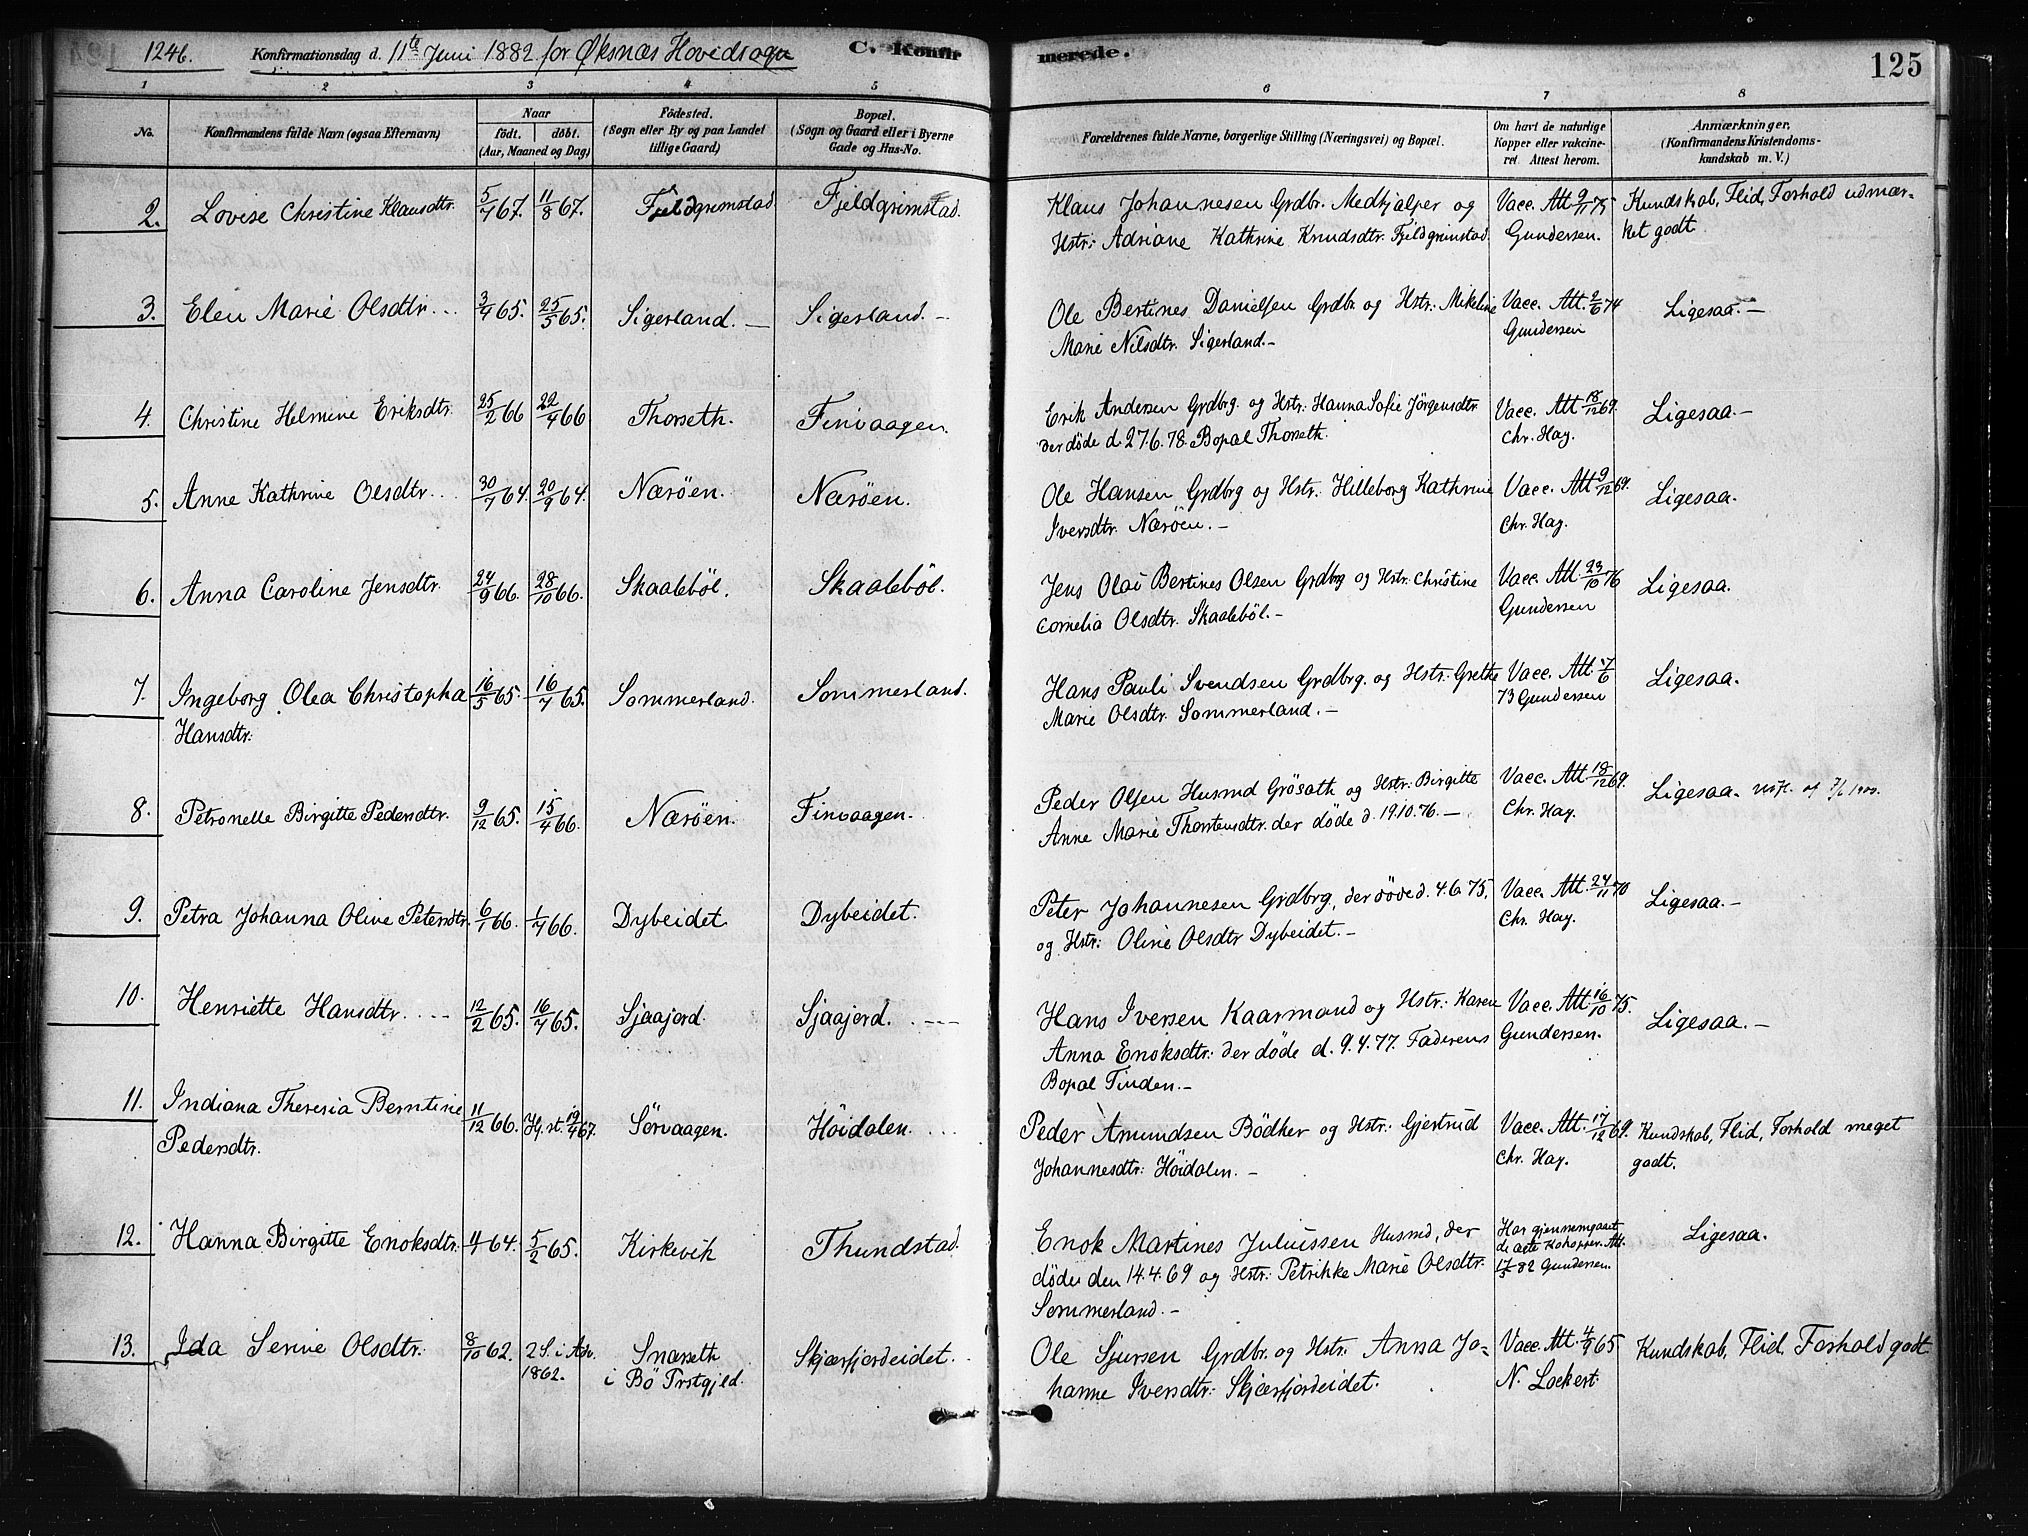 1246. Konfirmationsdag d. 11te Juni 1882 for Øksnæs Hovedsogn C. Konfirmerede. 125
1 2 3 4 5 6 7 8
No. Konfirmandens fulde Navn (ogsaa Efternavn) Naar født. døbt. (Aar, Maaned og Dag) Fødested. (Sogn eller By og paa Landet tillige Gaard) Bopæl. (Sogn og Gaard eller i Byerne Gade og Hus-No. Forældrenes fulde Navne, borgerlige Stilling (Næringsvei) og Bopæl. Om havt de naturlige Kopper eller vakcineret. Attest herom. Anmærkninger. (Konfirmandens Kristendomskundskab m. V.)
2. Lovise Christine Klausdtr. 5/7 67. 11/8 67. Fjeldgrimstad Fjeldgrimstad. Klaus Johannesen Grdbr. Medhjælper og Vacc. Att. 9/11 75 Kundskab, Flid, Forhold udmær-
Hstr: Adriane Kathrine Knudsdtr. Fjeldgrimstad. Gundersen. ket godt.
3. Elen Marie Olsdtr... 3/4 65. 25/5 65. Sigerland. — Sigerland. — Ole Bertines Danielsen Grdbr. og Hstr: Mikeline Vacc. Att. 2/6 74 Ligesaa. —
Marie Nilsdtr. Sigerland. — Gundersen
4. Christine Helmine Eriksdtr. 25/2 66 22/4 66 Thorseth. Finvaagen. Erik Andersen Grdbrg. og Hstr: Hanna Sofie Jörgensdtr. Vacc. Att. 18/12 69. Ligesaa. —
der döde d. 27.6.78. Bopal Thorseth. Chr. Hag.
5. Anne Kathrine Olsdtr... 30/7 64. 20/9 64. Næröen. Næröen. Ole Hansen Grdbrg og Hstr. Hilleborg Kathrine Vacc. Att. 9/12 69. Ligesaa.
Iversdtr. Næröen. — Chr. Hag.
6. Anna Caroline Jensdtr. 24/9 66. 28/10 66. Skaaleböl. Skaaleböl. Jens Olai Bertines Olsen Grdbrg og Hstr. Christine Vacc. Att. 23/10 76 Ligesaa.
Cornelia Olsdtr. Skaaleböl. — Gundersen
7. Ingeborg Olea Christopha 16/5 65. 16/7 65. Sommerland. Sommerland. Hans Pauli Svendsen Grdbrg. og Hstr: Grethe Vacc. Att. 7/6 Ligesaa.
Hansdtr: Marie Olsdtr. Sommerland. — 73 Gundersen
8. Petronelle Birgitte Pedersdtr. 9/12 65. 15/4 66. Næröen. Finvaagen. Peder Olsen Husmd Grösath og Hstr: Birgitte Vacc. Att. 18/12 69. Ligesaa. 7/6 1900.
Anne Marie Thorstensdtr. der döde d. 19.10.76. — Chr. Hag.
9. Petra Johanna Oline Petersdtr. 6/1 66. 1/7 66. Dybeidet Dybeidet. Peter Johannesen Grdbrg, der döde d. 4.6.75. Vacc. Att. 24/11 70 Ligesaa. —
og Hstr: Oline Olsdtr Dybeidet. — Chr. Hag.
10. Henriette Hansdtr.... 12/2 65. 16/7 65. Sjaajord. Sjaajord. Hans Iversen Kaarmand og Hstr: Karen Vacc. Att. 16/10 75. Ligesaa. —
Anna Enoksdtr: der döde d. 9.4.77. Faderens Gundersen.
Bopal Tinden. —
11. Indiana Theresia Berntine 11/12 66. Hj. st. 19/4 67. Sörvaagen. Höidalen.... Peder Amundsen Bödker og Hstr: Gjertrud Vacc. Att. 17/12 69. Kundskab, Flid, Forhold meget
Pedersdtr. Johannesdtr: Höidalen. — Chr. Hag. godt.
12. Hanna Birgitte Enoksdtr. 4/ 64. 5/2 65. Kirkevik Thundstad. Enok Martines Juliussen Husmd, der Har gjennemgaaet Ligesaa.
döde den 14.4.69 og Hstr: Petrikke Marie Olsdtr. de ægte Kokopper. Att.
Sommerland. — 17/5 82 Gundersen.
13. Ida Serine Olsdtr. 8/10 62. 2 S. i Adv. 1862. Snarseth i Bö Prstgjld. Skjærfjordeidet. Ole Sjursen Grdbr. og Hstr. Anna Jo- Vacc. Att. 4/9 65 Kundskab, Flid, Forhold godt
hanne Iversdtr: Skjærfjordeidet. N. Lockert